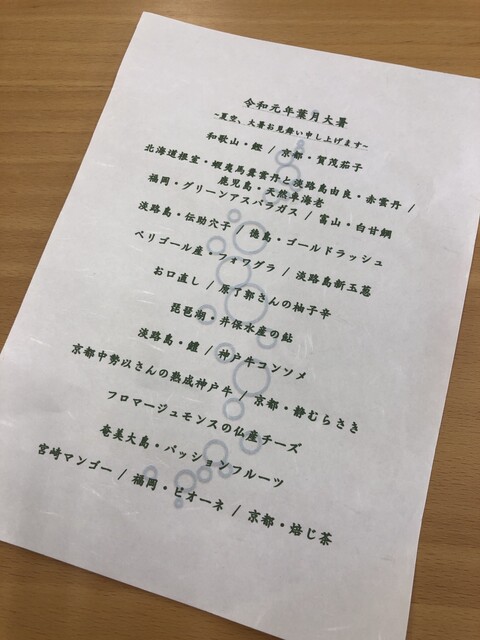 令和元年葉月大暑
~夏空、大暑お見舞い申し上げます~
和歌山・鰹 / 京都・賀茂茄子
北海道根室・蝦夷馬糞雲丹と淡路島由良・赤雲丹 /
鹿児島・天然車海老
福岡・グリーンアスパラガス / 富山・白甘鯛
淡路島・伝助穴子 / 徳島・ゴールドラッシュ
ペリゴール産・フォワグラ / 淡路島新玉葱
お口直し / 原了郭さんの柚子辛
琵琶湖・井保水産の鮎
淡路島・鱧 / 神戸牛コンソメ
京都中勢以さんの熟成神戸牛 / 京都・静むらさき
フロマージュモンスの仏産チーズ
奄美大島・パッションフルーツ
宮崎マンゴー / 福岡・ピオーネ / 京都・焙じ茶